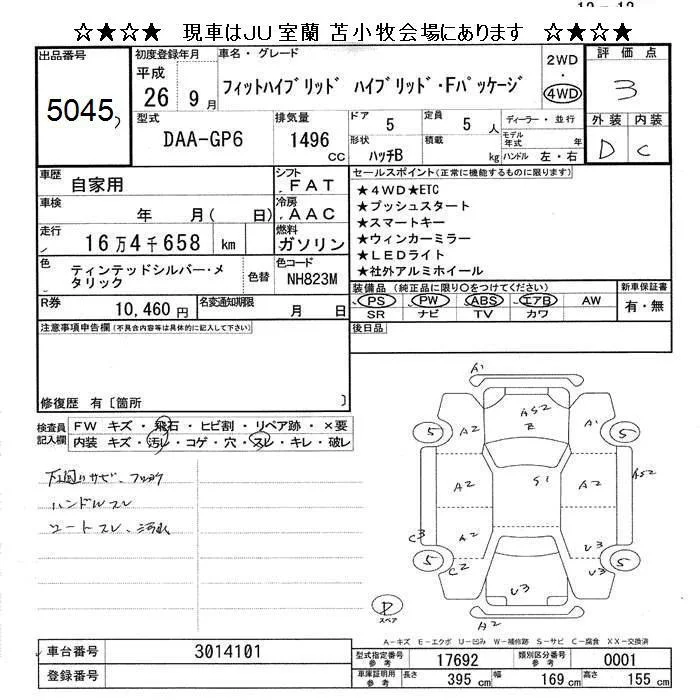 ☆★☆★ 現車はJU室蘭 苫小牧会場にあります ☆★☆★
出品番号
5045
初度登録年月
平成
26 9月
車名・グレード
フィットハイブリッド ハイブリッド・Fパッケージ
2WD
・
4WD
評価点
3
外装 内装
D C
型式
DAA-GP6
排気量
1496
CC
ドア 5
定員 5 人
形状 ハッチB
積載 kg
ディーラー・並行
モデル年式 年
ハンドル 左・右
車歴 自家用
シフト FAT
車検 年 月( 日)
冷房 AAC
走行 16万4千658 km
燃料 ガソリン
色 ティンテッドシルバー・メタリック
色替
色コード NH823M
R券 10,460円
名変通知期限 月 日
セールスポイント(正常に機能するものに限ります)
★4WD★ETC
★プッシュスタート
★スマートキー
★ウィンカーミラー
★LEDライト
★社外アルミホイール
装備品 (純正品に限り○をつけてください)
PS PW ABS エアB AW
SR ナビ TV カワ
新車保証書
有・無
後日品
注意事項申告欄(不具合内容等は具体的に記入して下さい)
修復歴 有〔箇所 〕
検査員記入欄
FW キズ・飛石・ヒビ割・リペア跡・×要
内装 キズ・汚レ・コゲ・穴・スレ・キレ・破レ
下廻りサビ、フショク
ハンドルスレ
シートスレ、汚れ
A1
AS2
E
A2
A1
5
5
S1
A2
A2
AS2
A2
C3
C2
U3
U3
U3
5
5
A2
P
スペア
A-キズ E-エクボ U-凹み W-補修跡 S-サビ C-腐食 XX-交換済
車台番号 3014101
登録番号
型式指定番号 参考 17692
類別区分番号 参考 0001
車庫証明用 参考 長さ 395 cm 幅 169 cm 高さ 155 cm